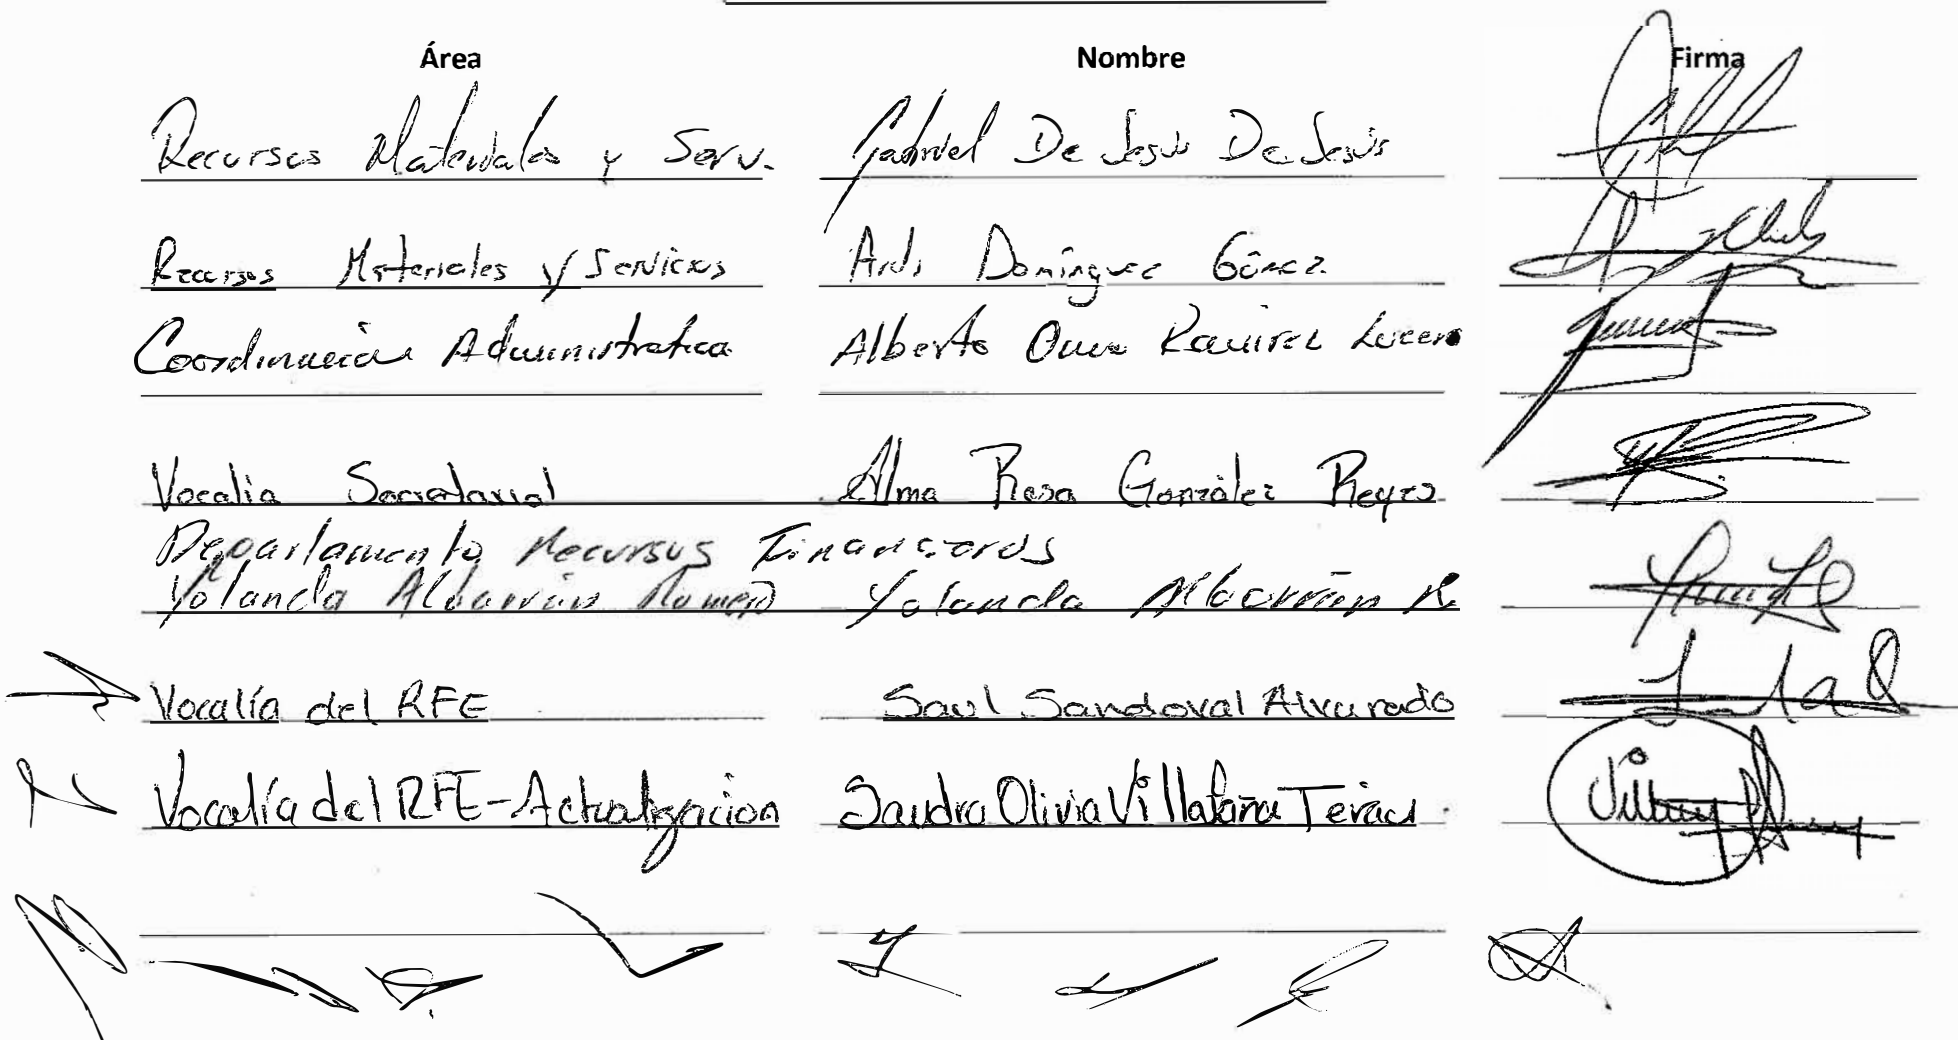 Área Nombre Firma
Recursos Materiales y Serv. Gabriel De Jesús De Jesús
Recursos Materiales y Servicios Domínguez Gómez
Coordinación Administrativa Alberto Omar Ramírez Lucero
Vocalia Secretarial Alma Rosa González Reyes
Departamento Recursos Financieros
Yolanda Albarrán Romero Yolanda Albarrán R.
Vocalía del RFE Saul Sandoval Alvarado
Vocalía del RFE-Actualizacion Sandra Olivia Villafaña Teran